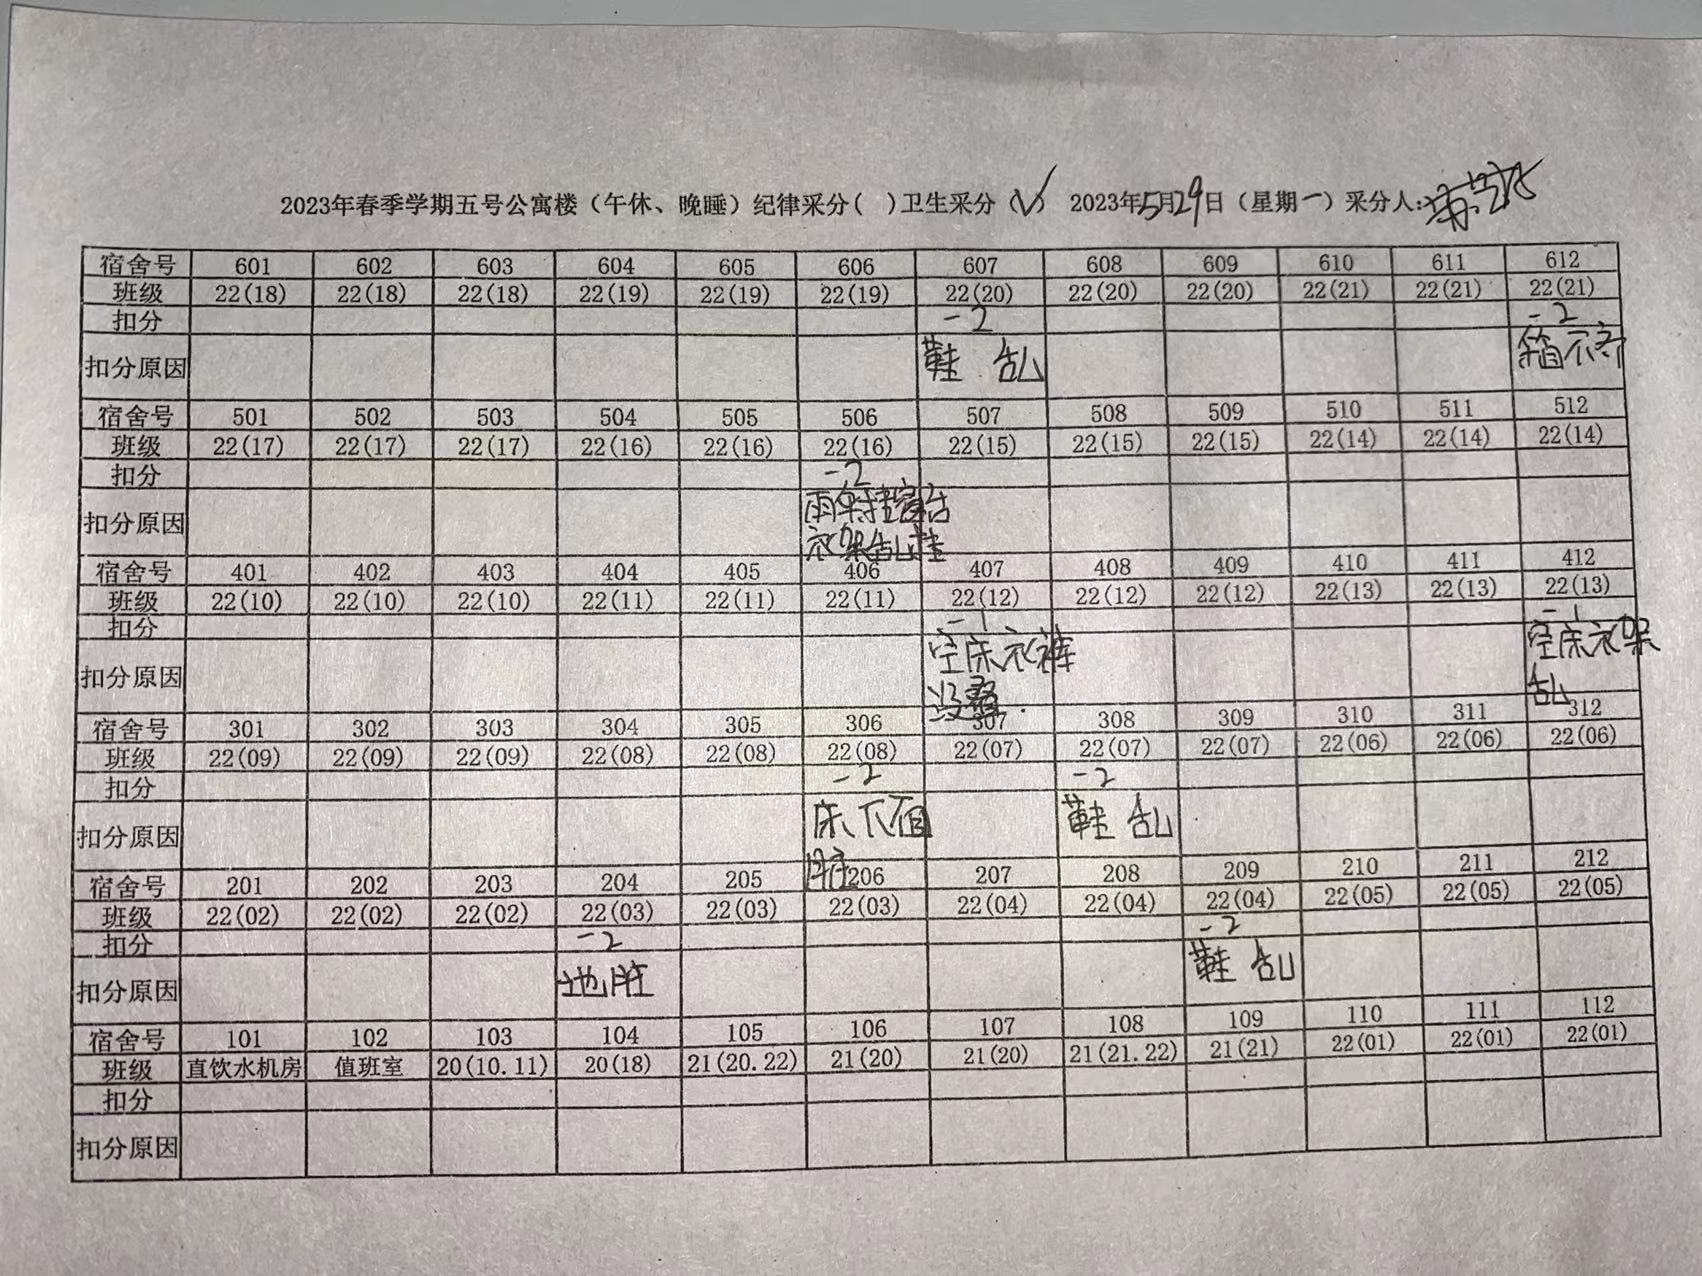 2023年春季学期五号公寓楼（午休、晚睡）纪律采分( )卫生采分（√） 2023年5月29日（星期一）采分人:
宿舍号 601 602 603 604 605 606 607 608 609 610 611 612
班级 22(18) 22(18) 22(18) 22(19) 22(19) 22(19) 22(20) 22(20) 22(20) 22(21) 22(21) 22(21)
扣分 -2 -2
扣分原因 鞋乱 箱不齐
宿舍号 501 502 503 504 505 506 507 508 509 510 511 512
班级 22(17) 22(17) 22(17) 22(16) 22(16) 22(16) 22(15) 22(15) 22(15) 22(14) 22(14) 22(14)
扣分 -2
扣分原因 雨伞挂宿舍
衣架乱挂
宿舍号 401 402 403 404 405 406 407 408 409 410 411 412
班级 22(10) 22(10) 22(10) 22(11) 22(11) 22(11) 22(12) 22(12) 22(12) 22(13) 22(13) 22(13)
扣分 -1 -1
扣分原因 空床衣裤 空床衣架
没叠. 乱
宿舍号 301 302 303 304 305 306 307 308 309 310 311 312
班级 22(09) 22(09) 22(09) 22(08) 22(08) 22(08) 22(07) 22(07) 22(07) 22(06) 22(06) 22(06)
扣分 -2 -2
扣分原因 床下面 鞋乱
脏
宿舍号 201 202 203 204 205 206 207 208 209 210 211 212
班级 22(02) 22(02) 22(02) 22(03) 22(03) 22(03) 22(04) 22(04) 22(04) 22(05) 22(05) 22(05)
扣分 -2 -2
扣分原因 地脏 鞋乱
宿舍号 101 102 103 104 105 106 107 108 109 110 111 112
班级 直饮水机房 值班室 20(10.11) 20(18) 21(20.22) 21(20) 21(20) 21(21.22) 21(21) 22(01) 22(01) 22(01)
扣分
扣分原因